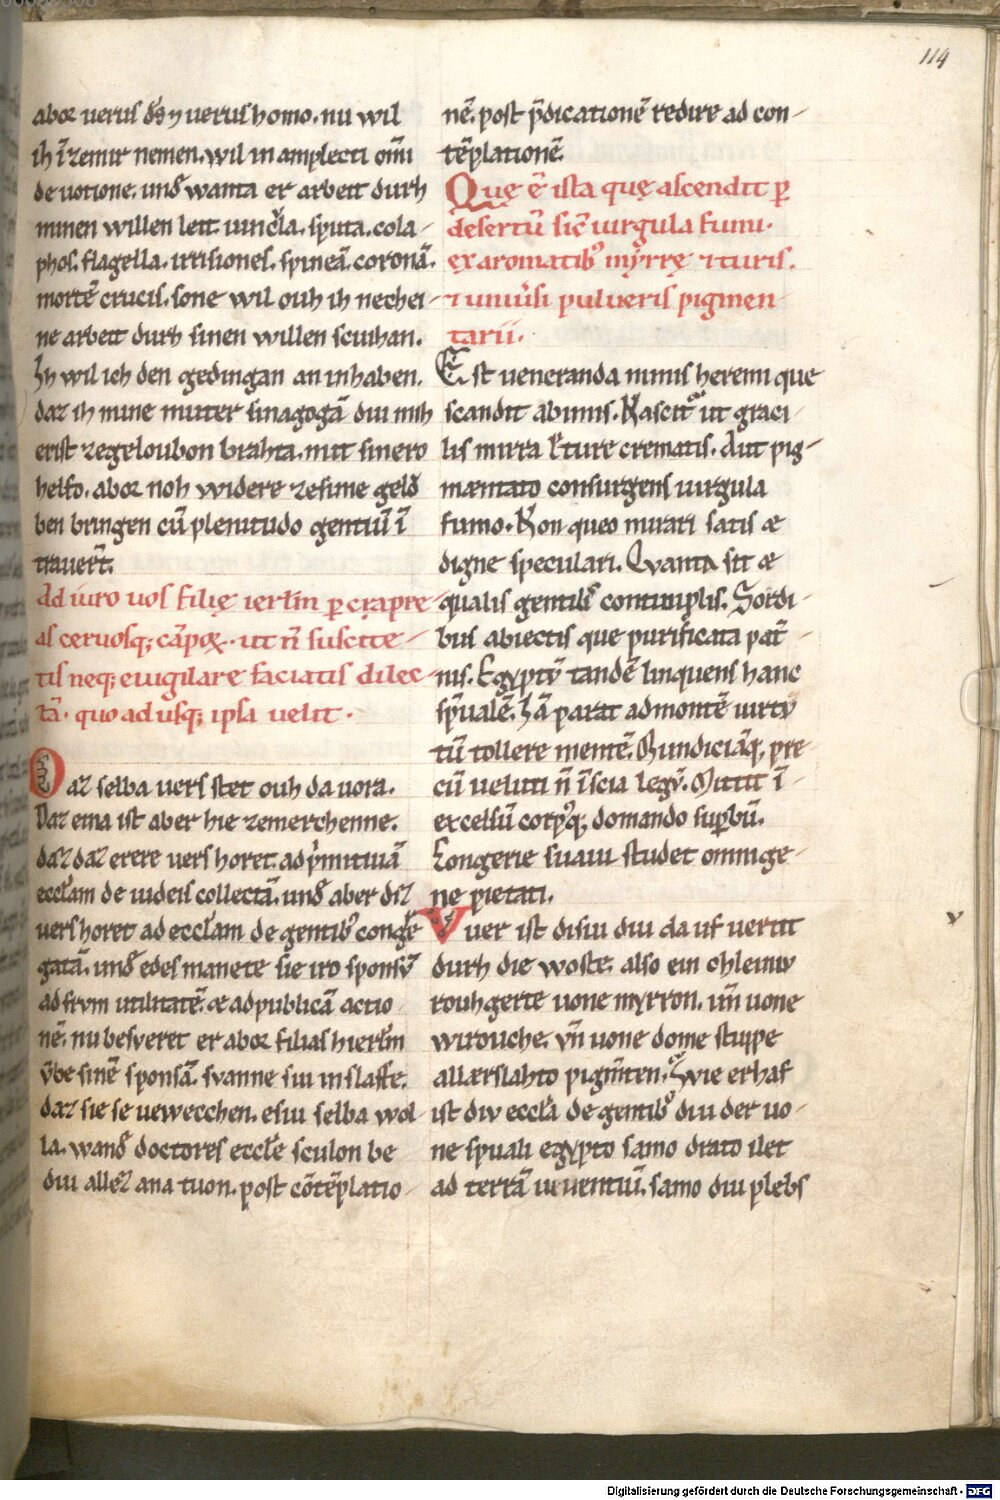 114
abor uerus ds̄ ⁊ uerus homo. nu wil
ih īzemir nemen. wil in amplecti om̄i
deuotione. und̄ wanta er arbeit durh
minen willen leit. uinc̄la. sputa. cola-
phos. flagella. irrisiones. spineā. coronā.
mortē crucis. sone wil ouh ih nechei-
ne arbeit durh sinen willen sciuhan.
Jh wil ich den gedingan an inhaben.
daz ih mine muter sinagogā diu mih
erist zegeloubon brahta. mit sinero
helfo. abor noh widere zesime gelo᷎
ben bringen cū plenitudo gentiū ī
trauerit̄.
Ad iuro uos filię ierl̄m p̄ cṛapre-
as ceruosq; cāpoꝝ. ut n̄ suscite-
tis neq; euigilare faciatis dilec-
tā. quo ad usq; ipsa uelit.
Daz selba uers stet ouh da uora.
Daz eina ist aber hie zemerchenne.
daz daz erere uers horet. ad p̄mitiuā
ecc̄lam de iudeis collectā. und̄ aber diz
uers horet ad ecc̄lam de gentib᷒ congr̄e
gatā. und̄ edes manete sie iro sponsv̄
ad frvm utilitatē. æ ad publicā actio-
nē. nu besveret er abor filias hierl̄m
v̄be sinē sponsā. svanne siu inslaffe.
daz sie se uewecchen. e siu selba wol-
la. wand̄ doctores ecc̄le sculon be
diu allez ana tuon. post cōtēplatio-
nē. post p̄dicationē redire ad con-
tēplationē.
Quę ē ista quę ascendit ꝑ
desertū sic̄ uirgula fumi.
ex aromatib᷒ mẏrrę ⁊ turis.
⁊ uniu̅si pulueris pigmen-
tarii.
Est ueneranda nimis heremi que
scandit ab imis. Nascit᷑ ut graci-
lis mirra l̄ ture crematis. Aut pig-
mæntato consurgens uirgula
fumo. Non queo mirari satis æ
digne speculari. Qvanta sit æ
qualis gentilis̄ contimplis. Sordi-
bus abiectis que purificata pat̄-
nis. Egyptv̄ tandē linquens hanc
sp̄ualē. Jā parat ad montē uirtv
tū tollere mentē. Mundiciāq; pre-
cū ueluti n̄ īscia legv̄. Mittit ī-
excelsū corp᷒q; domando sup̄bū.
Congerie suaui studet omnige-
ne pietati.
Vuer ist disiu diu da uf uertit
durh die woste. also ein chleiniv
rouhgerte uone myrron. un̄ uone
wirouche. vn̄ uone deme stuppe
allærslahto pigm̄ten. Swie erhaf
ist div ecc̄la de gentib᷒ diu der uo-
ne sp̄uali egypto samo drato ilet
ad terrā uiuentiū. samo diu plebs
Digitalisierung gefördert durch die Deutsche Forschungsgemeinschaft - DFG